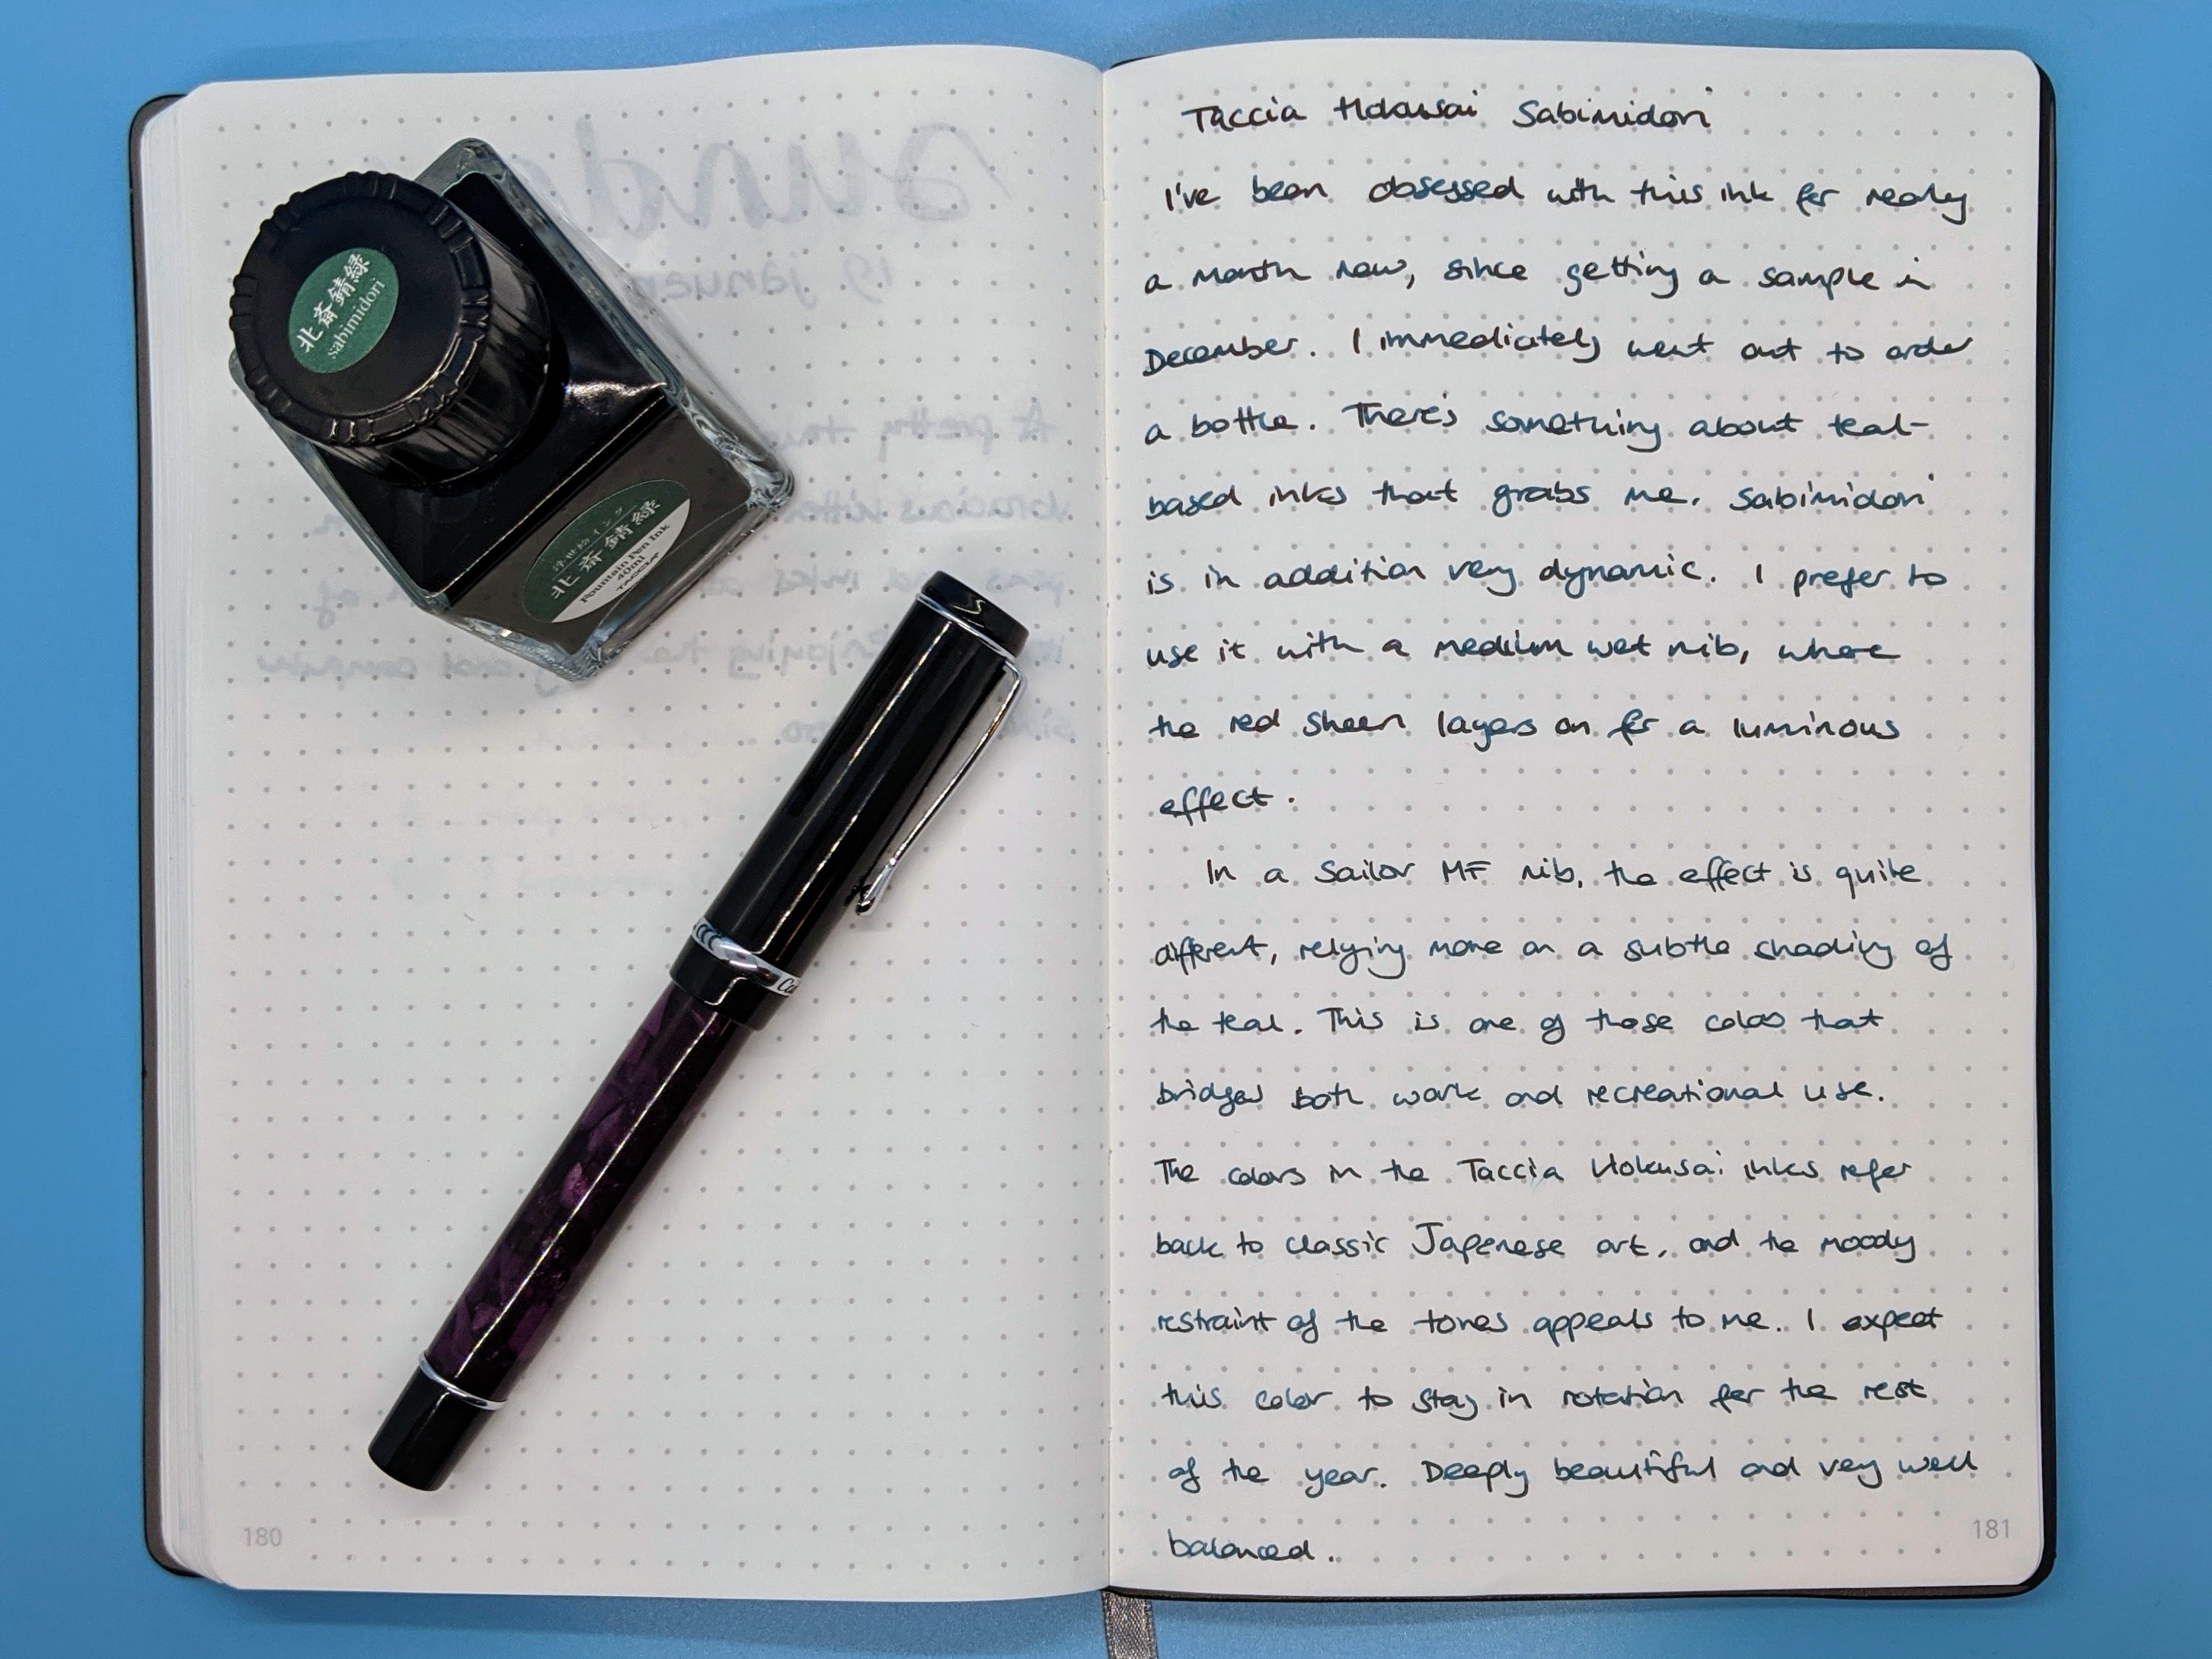 北斎錆緑
sabimidori
北斎錆緑
Fountain Pen Ink
40ml
TACCIA
180
Taccia Hokusai Sabimidori
I've been obsessed with this ink for nearly
a month now, since getting a sample in
December. I immediately went out to order
a bottle. There's something about teal-
based inks that grabs me. Sabimidori
is in addition very dynamic. I prefer to
use it with a medium wet nib, where
the red sheen layers on for a luminous
effect.
In a Sailor MF nib, the effect is quite
different, relying more on a subtle shading of
the teal. This is one of those colors that
bridges both work and recreational use.
The colors in the Taccia Hokusai inks refer
back to classic Japenese art, and the moody
restraint of the tones appeals to me. I expect
this color to stay in rotation for the rest
of the year. Deeply beautiful and very well
balanced.
181